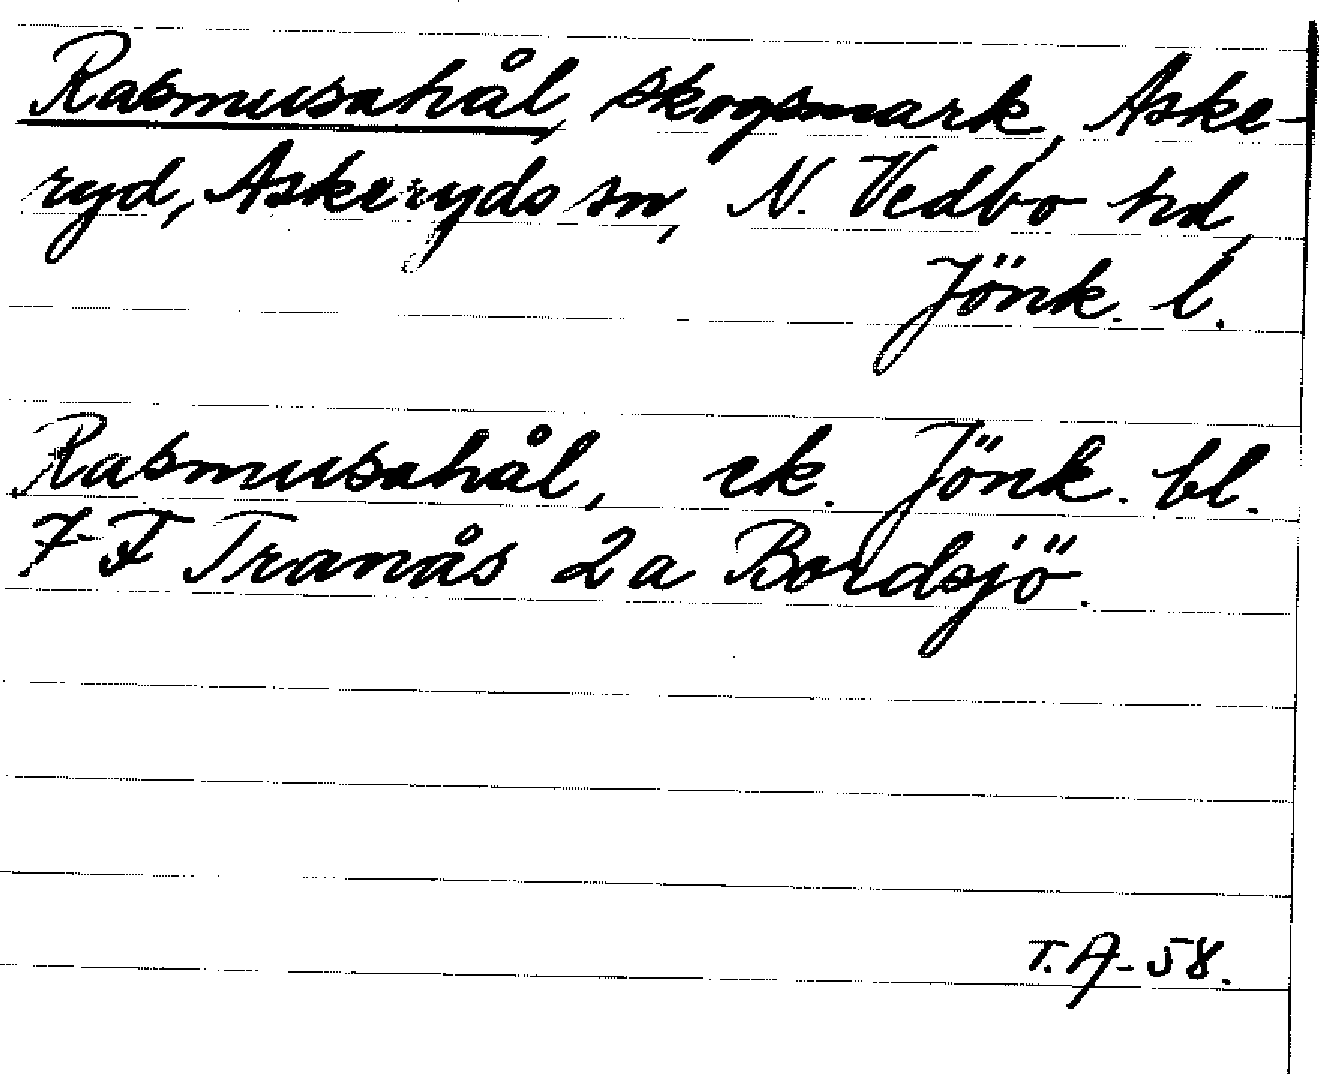 Rasmusahål, skogsmark, Aske-
ryd, Askeryds sn, N. Vedbo hd,
Jönk. l.
Rasmusahål, ek. Jönk. bl.
7 F Tranås 2 a Bordsjö.
T. A-58.